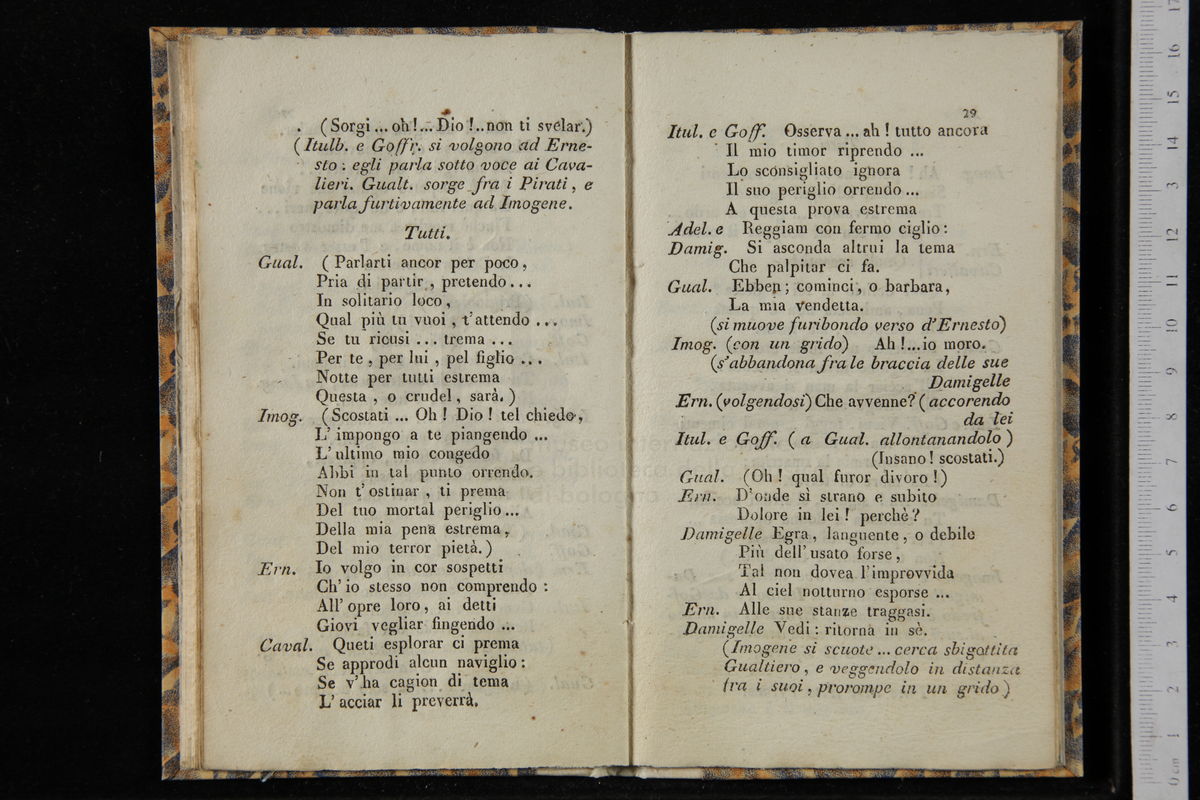 . (Sorgi ... oh!... Dio!..non ti svelar.)
(Itulb. e Goffr. si volgono ad Erne-
sto : egli parla sotto voce ai Cava-
lieri. Gualt. sorge fra i Pirati, e
parla furtivamente ad Imogene.
Tutti.
Gual. (Parlarti ancor per poco,
Pria di partir, pretendo...
In solitario loco,
Qual più tu vuoi, t'attendo ...
Se tu ricusi ... trema ...
Per te, per lui, pel figlio ...
Notte per tutti estrema
Questa, o crudel, sarà.)
Imog. (Scostati ... Oh! Dio! tel chiedo,
L'impongo a te piangendo ...
L'ultimo mio congedo
Abbi in tal punto orrendo.
Non t'ostinar, ti prema
Del tuo mortal periglio...
Della mia pena estrema,
Del mio terror pietà.)
Ern. Io volgo in cor sospetti
Ch'io stesso non comprendo :
All'opre loro, ai detti
Giovi vegliar fingendo ...
Caval. Queti esplorar ci prema
Se approdi alcun naviglio :
Se v'ha cagion di tema
L'acciar li preverrà.
29
Itul. e Goff. Osserva ... ah! tutto ancora
Il mio timor riprendo ...
Lo sconsigliato ignora
Il suo periglio orrendo ...
A questa prova estrema
Adel. e Reggiam con fermo ciglio :
Damig. Si asconda altrui la tema
Che palpitar ci fa.
Gual. Ebben; cominci, o barbara,
La mia vendetta.
(si muove furibondo verso d'Ernesto)
Imog. (con un grido) Ah!...io moro.
(s'abbandona fra le braccia delle sue
Damigelle
Ern. (volgendosi) Che avvenne? (accorendo
da lei
Itul. e Goff. (a Gual. allontanandolo)
(Insano! scostati.)
Gual. (Oh! qual furor divoro!)
Ern. D'onde sì strano e subito
Dolore in lei! perchè?
Damigelle Egra, languente, o debile
Più dell'usato forse,
Tal non dovea l'improvvida
Al ciel notturno esporse ...
Ern. Alle sue stanze traggasi.
Damigelle Vedi : ritorna in sè.
(Imogene si scuote ... cerca sbigottita
Gualtiero, e veggendolo in distanza
fra i suoi, prorompe in un grido)
17
16
15
14
13
12
11
10
9
8
7
6
5
4
3
2
1
0 cm